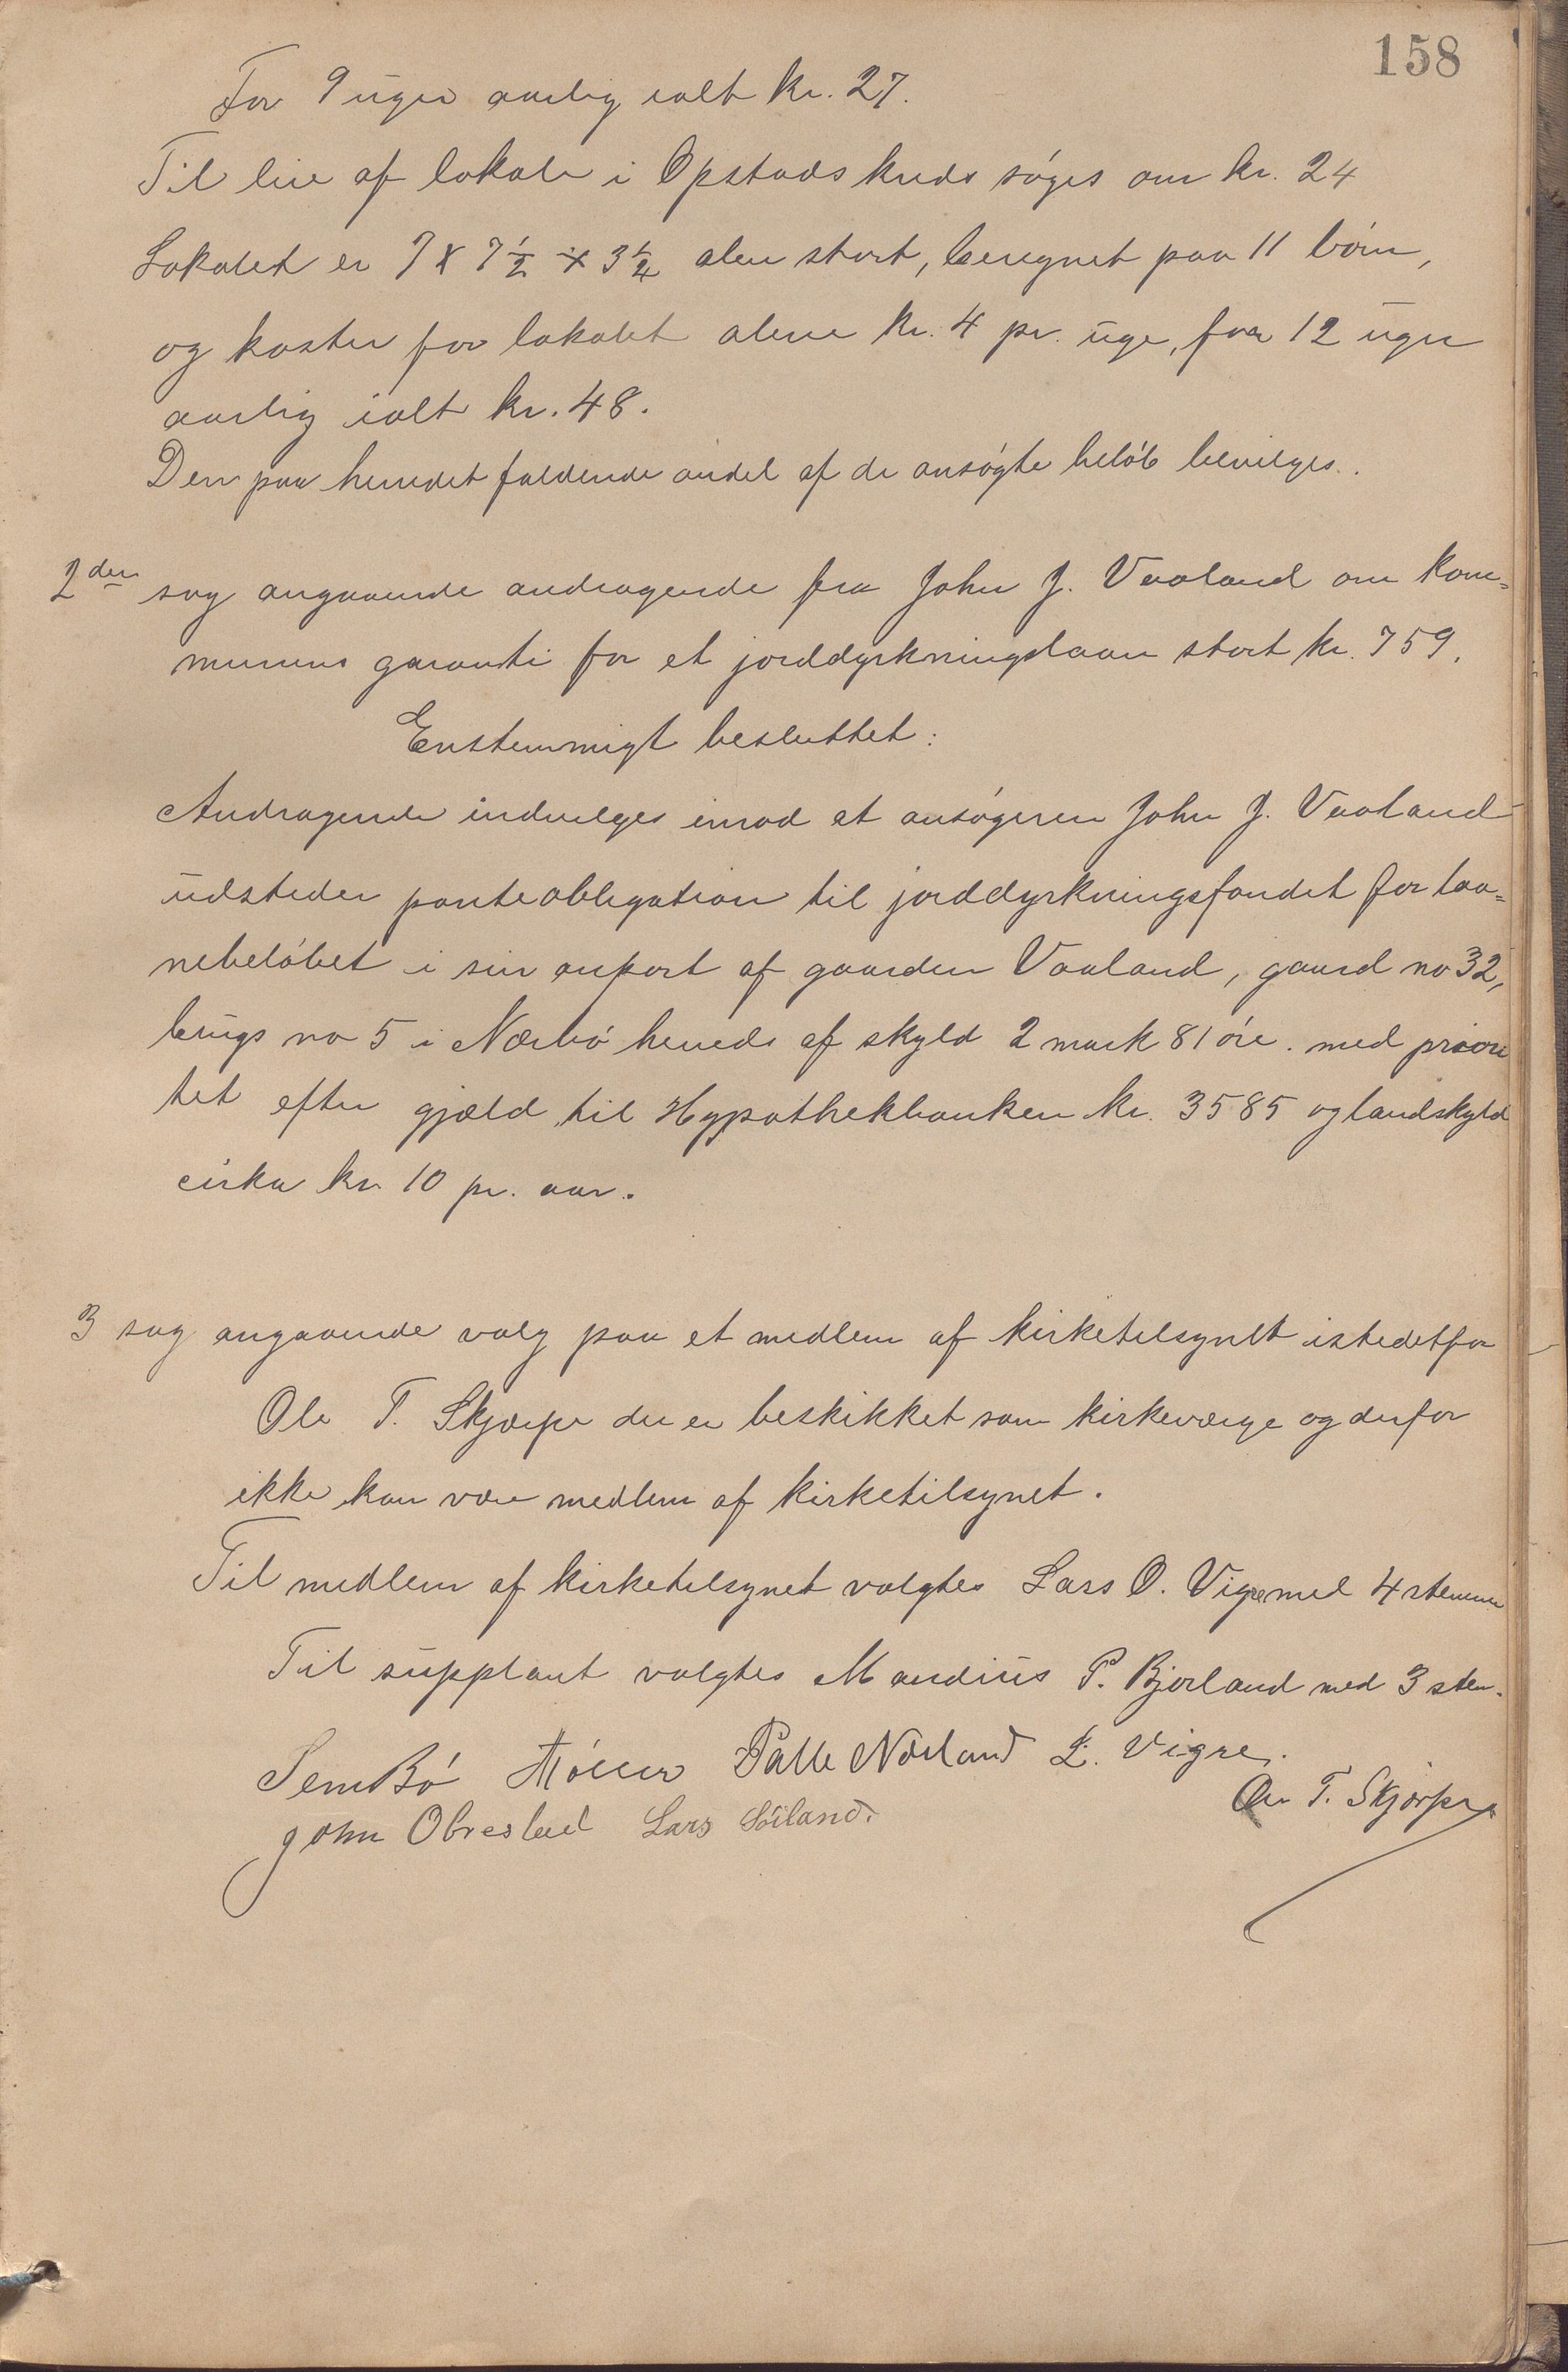 158
For 9 uger aarlig ialt kr. 27.
Til leie af lokale i Opstads kreds søges om kr. 24
Lokalet er 7 x 7 1/2 x 3 1/4 alen stort, beregnet paa 11 børn,
og koster for lokalet alene kr. 4 pr. uge, for 12 uger
aarlig ialt kr. 48.
Den paa herredet faldende andel af de ansøgte beløb bevilges.
2den sag angaaende andragende fra John J. Vaaland om kom=
munens garanti for et jorddyrkningslaan stort kr. 759.
Enstemmigt besluttet:
Andragende indvelges imod at ansøgeren John J. Vaaland
udsteder panteobligation til jorddyrkningsfondet for laa=
nebeløbet i sin anpart af gaarden Vaaland, gaard no 32,
brugs no 5 i Nærbø herreds af skyld 2 mark 81 øre. med priori
tet efter gjæld til Hypothekbanken kr. 3585 og landskyld
cirka kr 10 pr. aar.
3 sag angaaende valg paa et medlem af kirketilsynet istedetfor
Ole T. Skjærpe der er beskikket som kirkeværge og derfor
ikke kan være medlem af kirketilsynet.
Til medlem af kirketilsynet valgtes Lars O. Vigre med 4 stemmer
Til supplant valgtes Mandius P. Bjorland med 3 stem.
Sem Bø Palle Nærland L. Vigre.
John Obrestad Lars Søiland. Ole T. Skjærpe